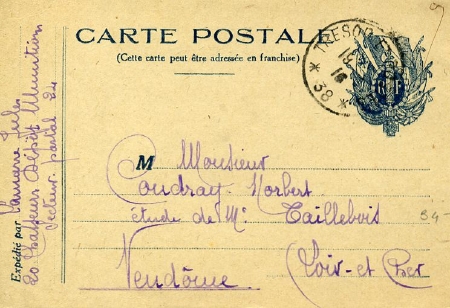 CARTE POSTALE
(Cette carte peut être adressée en franchise)
TRESOR
18
16
* 38 *
RF
M Monsieur
Coudray-Norbert
étude de Me Taillebois
Vendôme Loir-et Cher
54
Expédié par Jules
20 Chasseurs Dépôt Munitions
Secteur postal 24